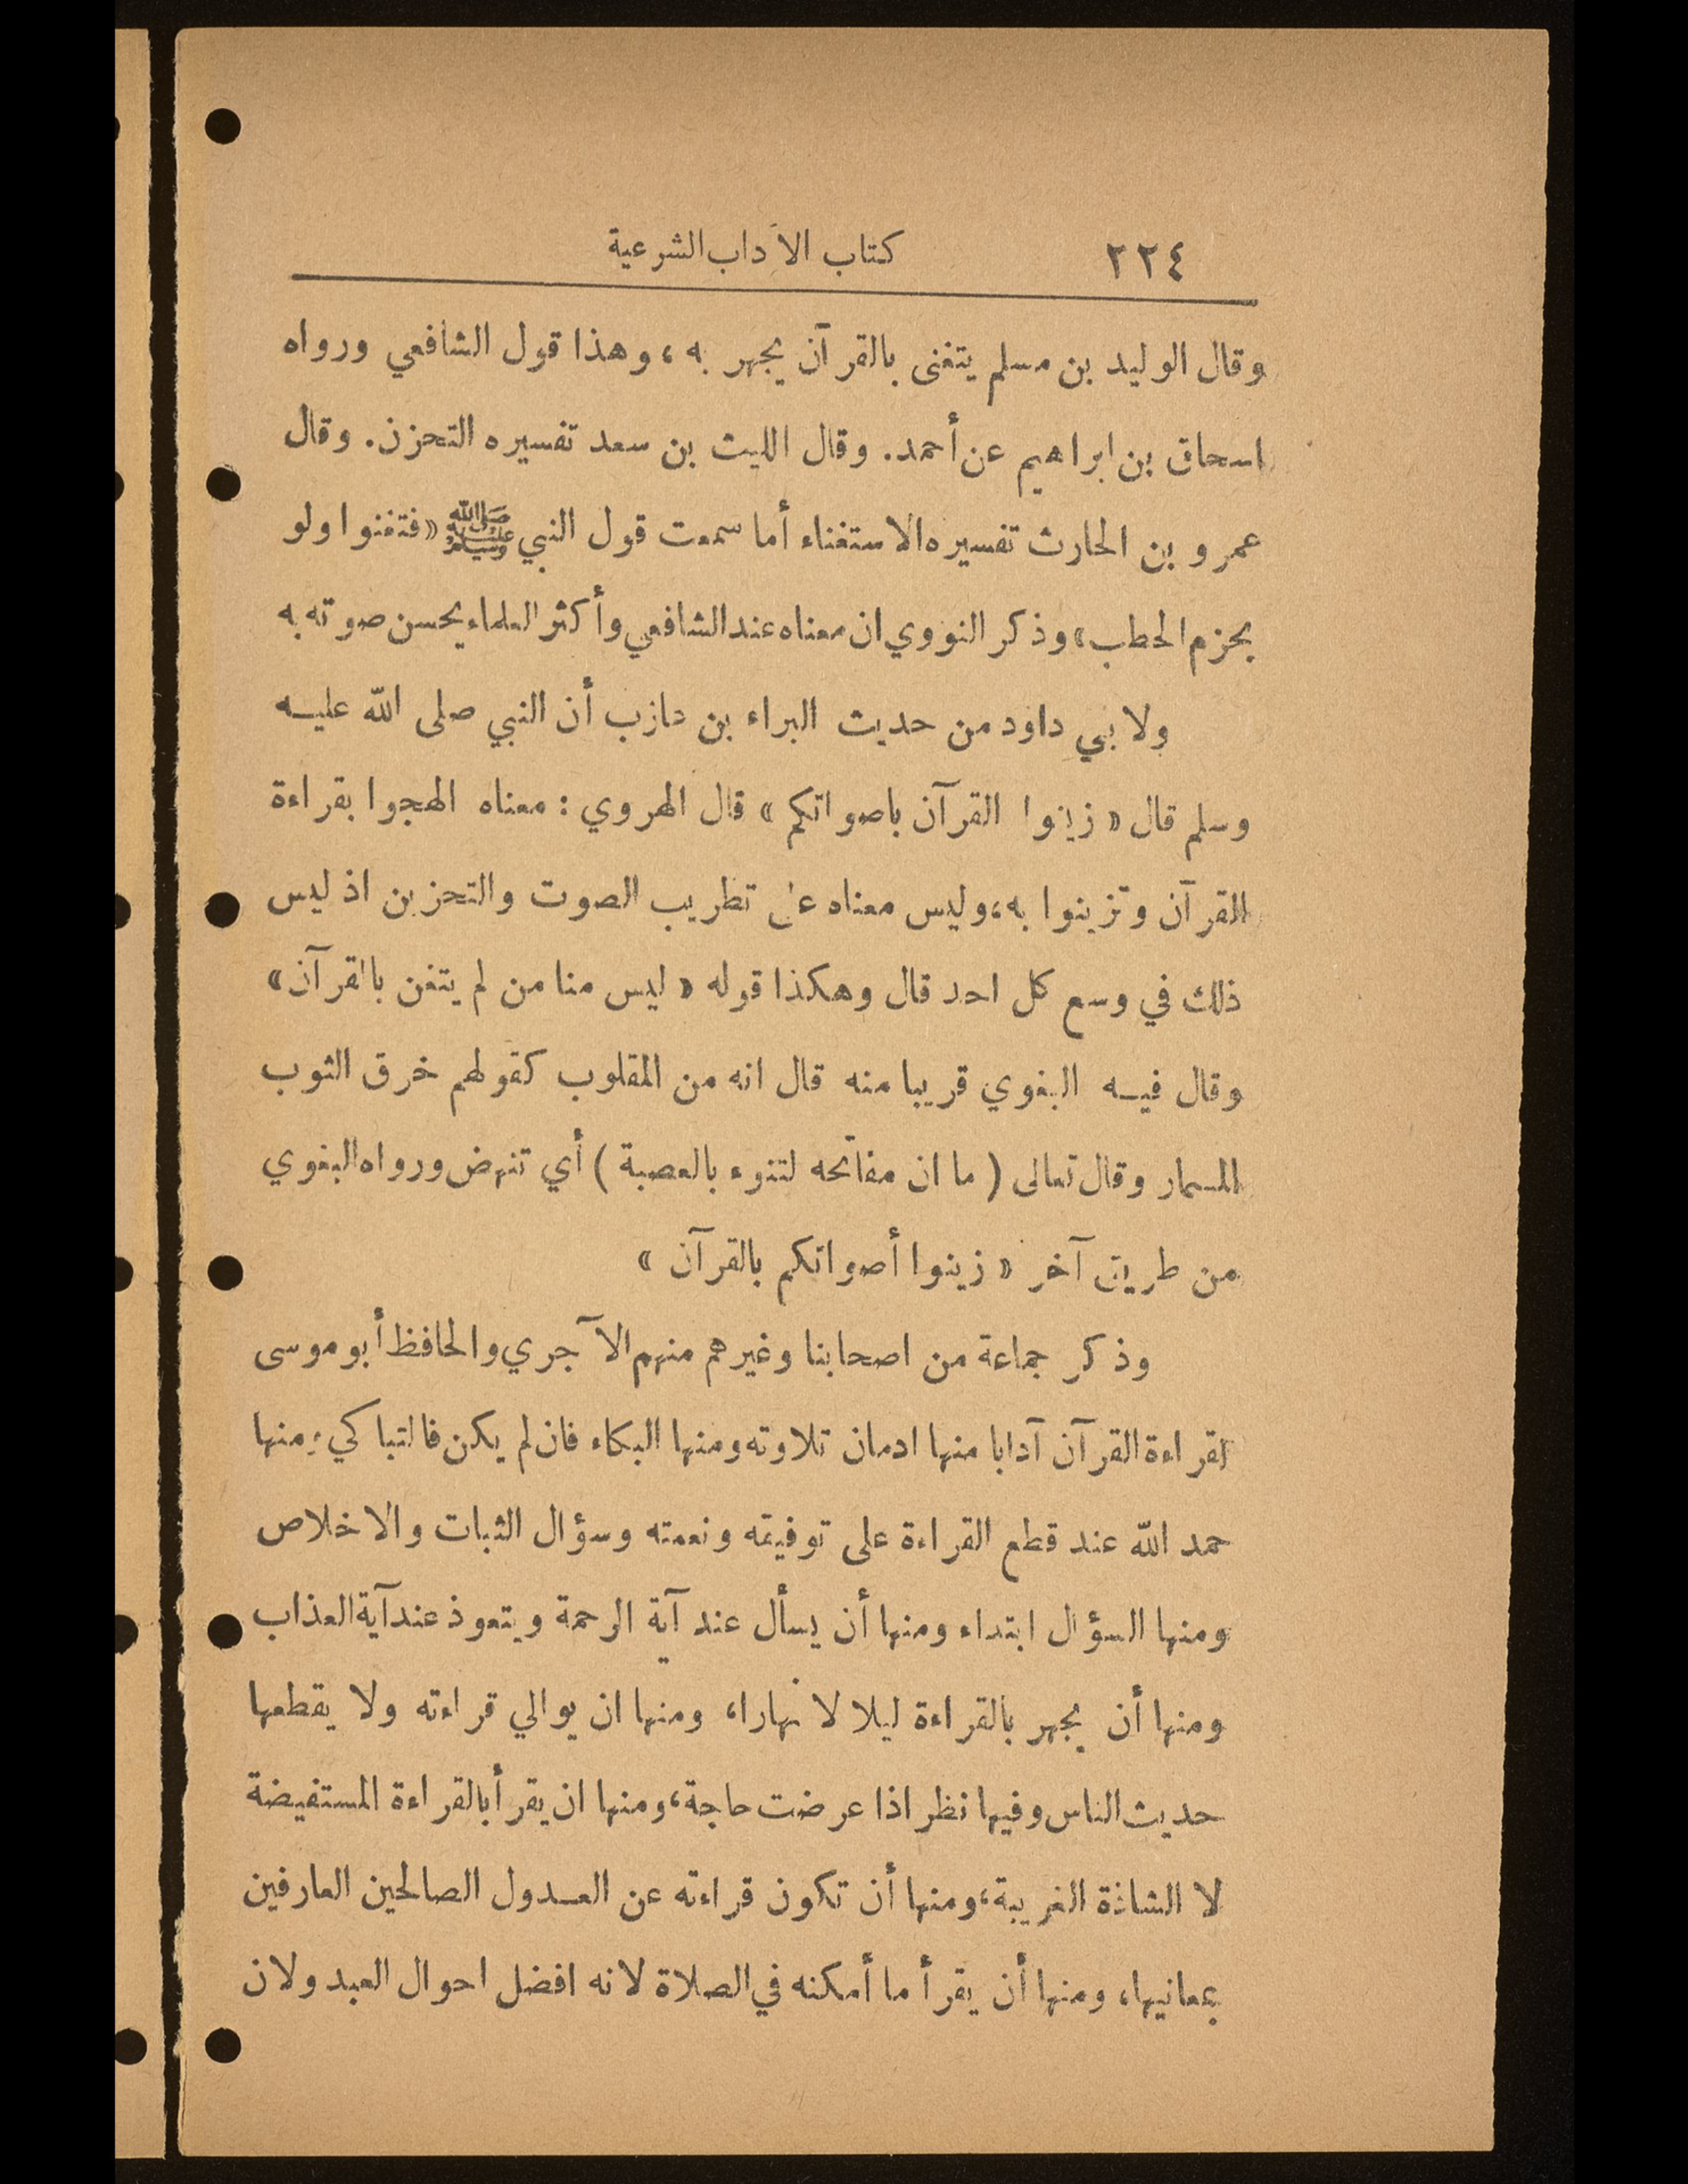 ٢٢٤ كتاب الآداب الشرعية
وقال الوليد بن مسلم يتغنى بالقرآن يجهر به، وهذا قول الشافعي ورواه
اسحاق بن ابراهيم عن أحمد. وقال الليث بن سعد تفسيره التحزن. وقال
عمرو بن الحارث تفسيره الاستغناء أما سمعت قول النبي ﷺ «فتغنوا ولو
بحزم الحطب» وذكر النووي ان معناه عند الشافعي وأكثر العلماء يحسن صوته به
ولابي داود من حديث البراء بن عازب أن النبي صلى الله عليه
وسلم قال «زينوا القرآن باصواتكم» قال الهروي : معناه الهجوا بقراءة
القرآن وتزينوا به، وليس معناه على تطريب الصوت والتحزين اذ ليس
ذلك في وسع كل احد قال وهكذا قوله «ليس منا من لم يتغن بالقرآن»
وقال فيه البغوي قريبا منه قال انه من المقلوب كقولهم خرق الثوب
المسمار وقال تعالى (ما ان مفاتحه لتنوء بالعصبة) أي تنهض ورواه البغوي
من طريق آخر «زينوا أصواتكم بالقرآن»
وذكر جماعة من اصحابنا وغيرهم منهم الآجري والحافظ أبو موسى
لقراءة القرآن آدابا منها ادمان تلاوته ومنها البكاء فان لم يكن فالتباكي ومنها
حمد الله عند قطع القراءة على توفيقه ونعمته وسؤال الثبات والاخلاص
ومنها السؤال ابتداء ومنها أن يسأل عند آية الرحمة ويتعوذ عند آية العذاب
ومنها أن يجهر بالقراءة ليلا لا نهارا، ومنها ان يوالي قراءته ولا يقطعها
حديث الناس وفيها نظر اذا عرضت حاجة، ومنها ان يقرأ بالقراءة المستفيضة
لا الشاذة الغريبة، ومنها أن تكون قراءته عن العدول الصالحين العارفين
بمعانيها، ومنها أن يقرأ ما أمكنه في الصلاة لانه افضل احوال العبد ولان